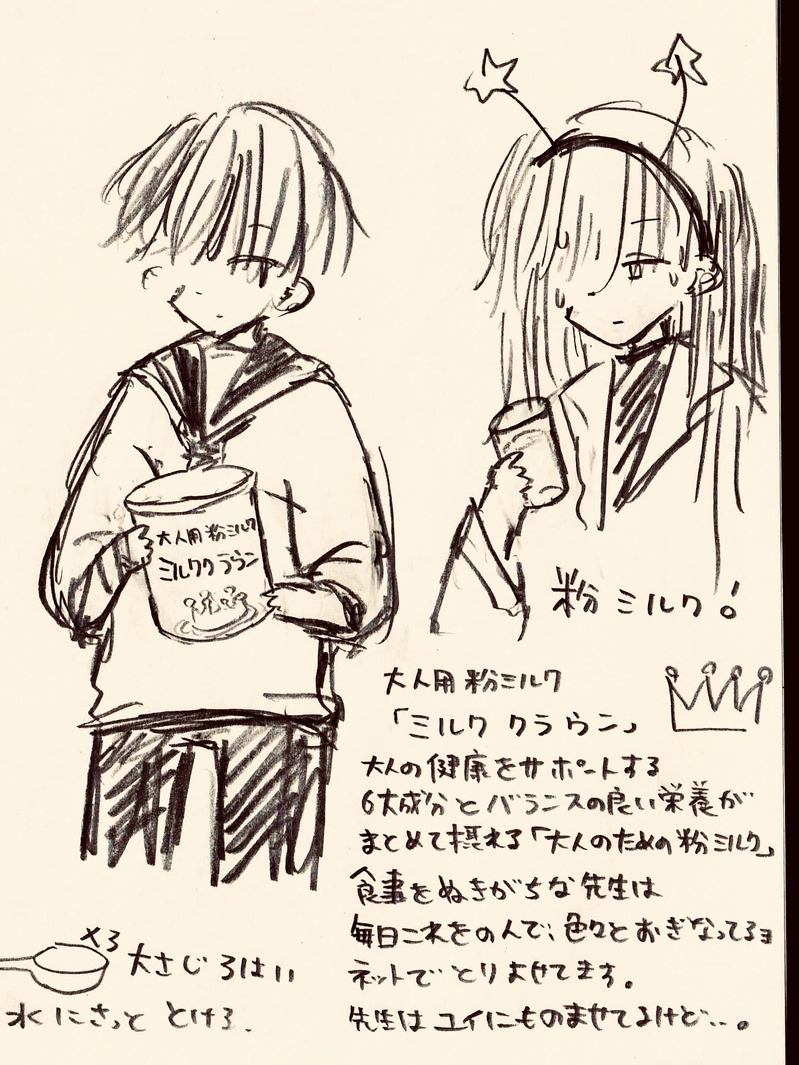 大人用粉ミルク
ミルククラウン
粉ミルク!
大人用粉ミルク
「ミルククラウン」
大人の健康をサポートする
6大成分とバランスの良い栄養が
まとめて摂れる「大人のための粉ミルク」
食事をぬきがちな先生は
毎日これをのんで、色々とおぎなってるョ
ネットでとりよせてます。
先生はユイにものませてるけど…。
×3
大さじ3はい
水にさっととける.